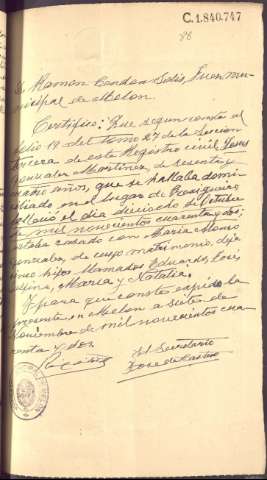 C.1.840.747
86
D. Ramon Cendon Solis, Juez mu-
nicipal de Melon
Certifico: Que segun consta al
folio 19 del tomo 27 de la Seccion
tercera de este Registro civil, Jesus
Gonzalez Martinez, de sesenta y
años, que se hallaba domi-
ciliado en el lugar de
falleció el dia dieciocho de Octubre
de mil novecientos cuarenta y dos;
estaba casado con Maria Alonso
Gonzalez, de cuyo matrimonio, deja
cinco hijos llamados Eduardo, José,
Maria y Natalia.
Y para que conste expido la
presente en Melon a siete de
Noviembre de mil novecientos cua-
renta y dos.
El Secretario
Jose de Castro